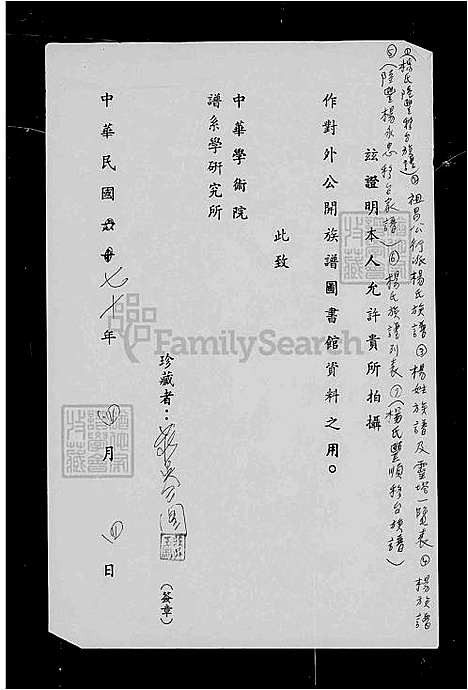 ①楊氏陸豐移台族譜②祖昌公行派楊氏族譜③楊姓族譜及靈塔一覽表④楊族譜
⑤(陸豐楊永忠移台家譜)⑥楊氏族譜列表⑦(楊氏豐順移台族譜)
茲證明本人允許貴所拍攝
作對外公開族譜圖書館資料之用。
此致
中華學術院
譜系學研究所
珍藏者：
(簽章)
中華民國七十年四月四日
FamilySearch